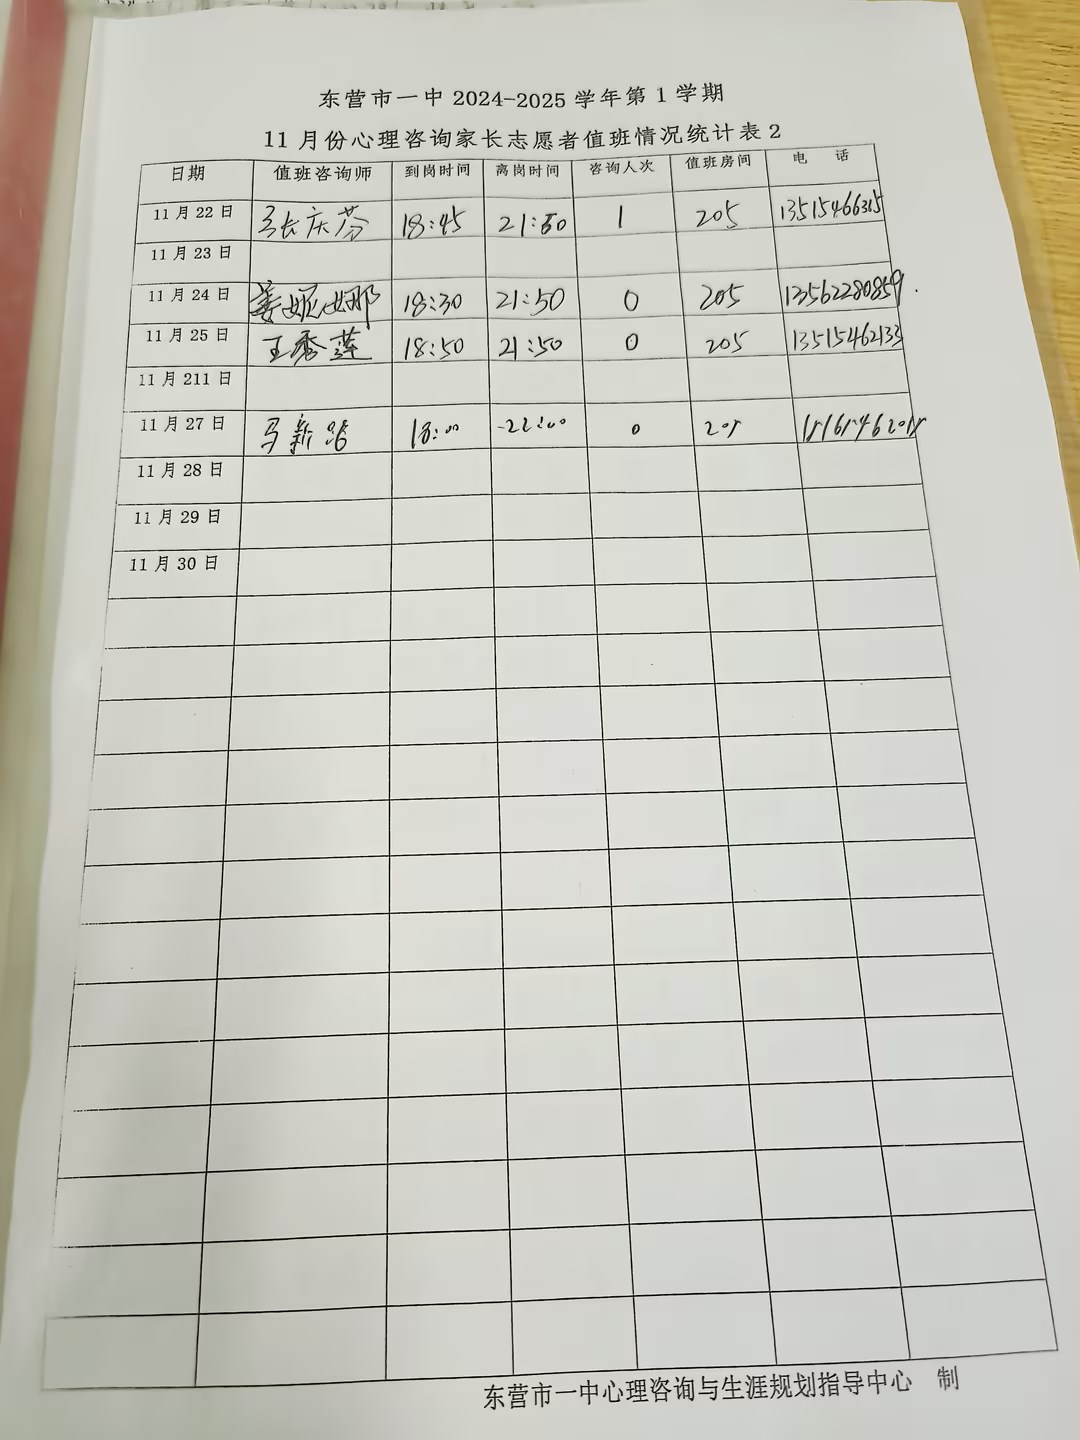 东营市一中 2024-2025 学年第 1 学期
11 月份心理咨询家长志愿者值班情况统计表 2
日期 值班咨询师 到岗时间 离岗时间 咨询人次 值班房间 电 话
11 月 22 日 张庆芬 18:45 21:50 1 205 13515466315
11 月 23 日
11 月 24 日 姜妮娜 18:30 21:50 0 205 13562280859
11 月 25 日 王秀莲 18:50 21:50 0 205 13515462133
11 月 211 日
11 月 27 日 马新 18:00 22:00 0 205
11 月 28 日
11 月 29 日
11 月 30 日
东营市一中心理咨询与生涯规划指导中心 制